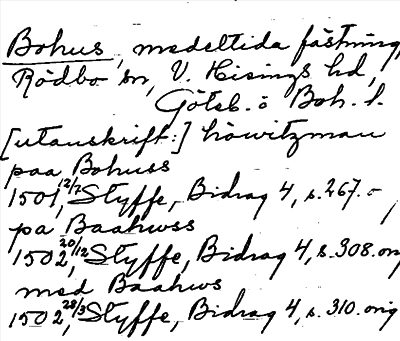 Bohus, medeltida fästning,
Rödbo sn, V. Hisings hd,
Göteb. o Boh. l.
[utanskrift:] höwitzman
paa Bohuss
1501 12/7, Styffe, Bidrag 4, s. 267.
pa Baahwss
1502 20/12, Styffe, Bidrag 4, s. 308. orig
med Baahws
1502 28/3, Styffe, Bidrag 4, s. 310. orig